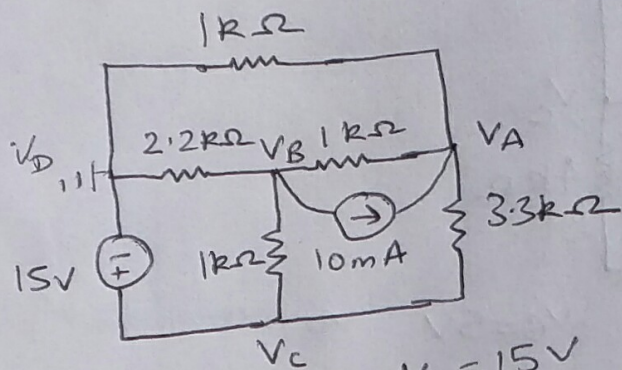 1kΩ
2.2kΩ VB 1kΩ VA
VD
3.3kΩ
15V 1kΩ 10mA
VC
= 15V